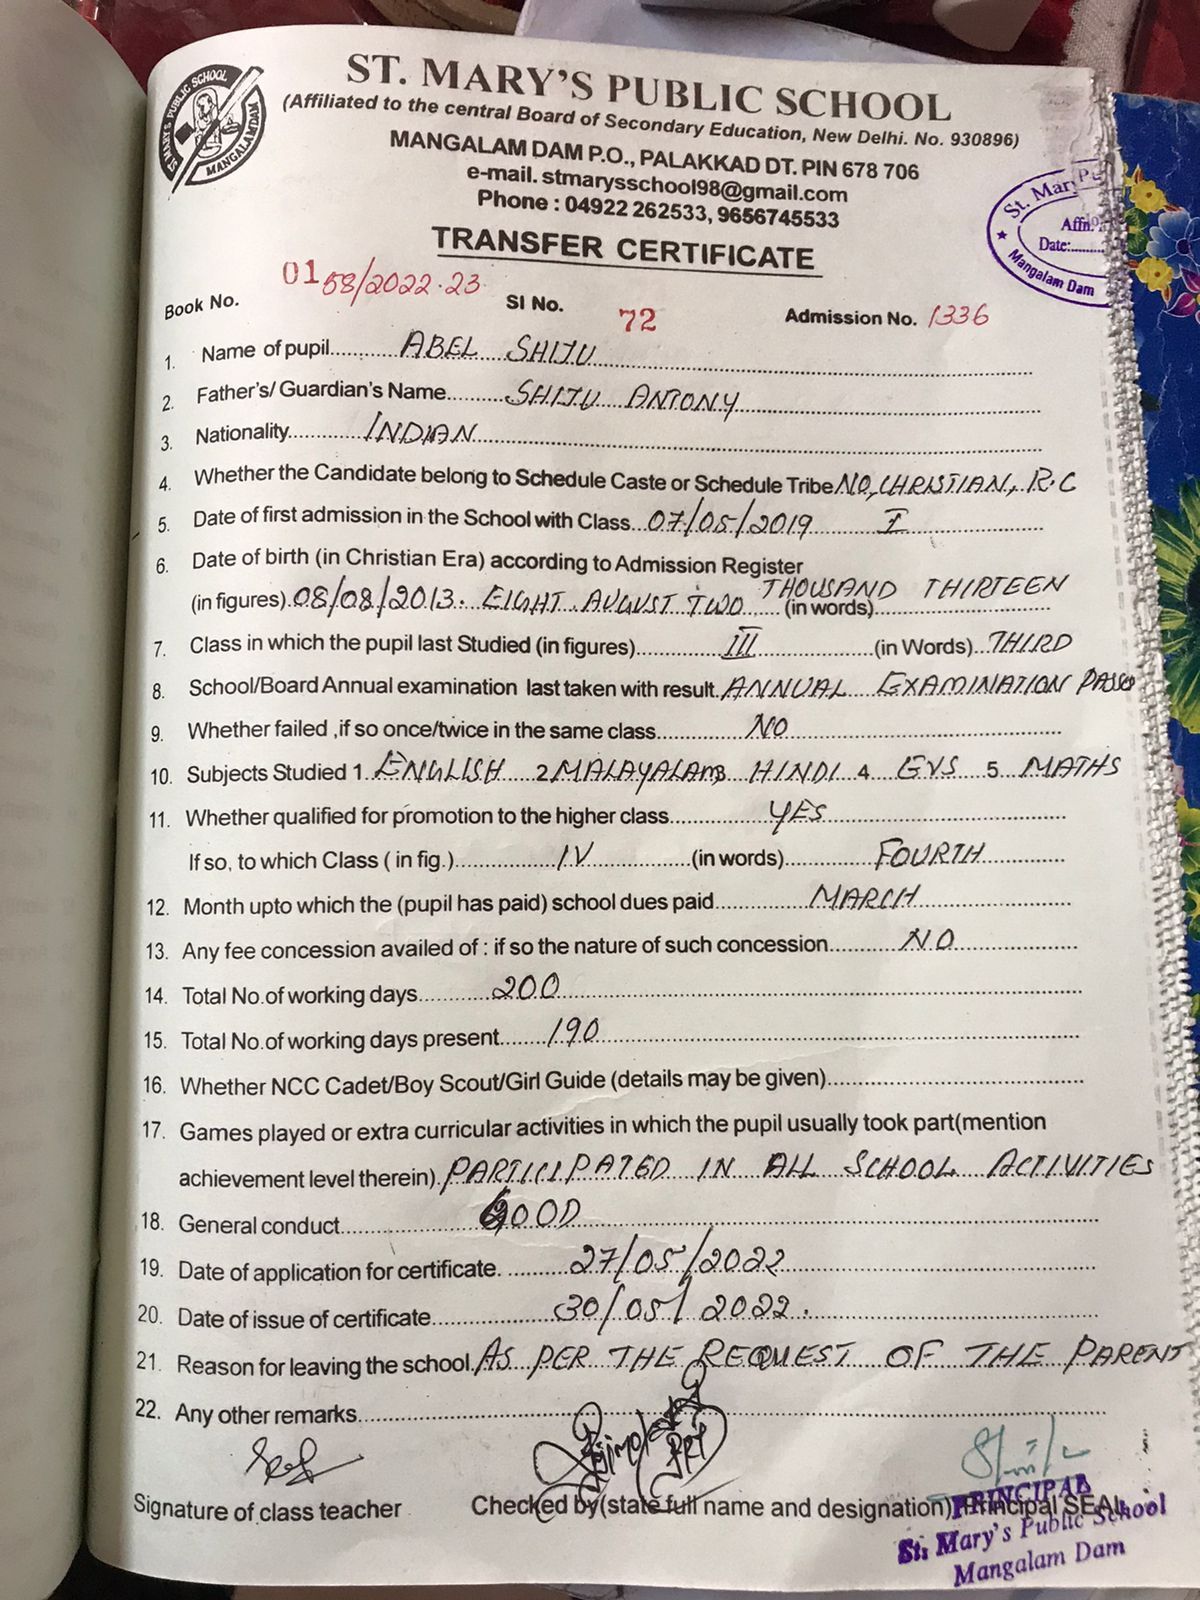 ST. MARY'S PUBLIC SCHOOL
MANGALAMDAM
ST. MARY'S PUBLIC SCHOOL
(Affiliated to the central Board of Secondary Education, New Delhi. No. 930896)
MANGALAM DAM P.O., PALAKKAD DT. PIN 678 706
e-mail. stmarysschool98@gmail.com
Phone : 04922 262533, 9656745533
St. Mary's Pu
Affn.
Date:
Mangalam Dam
TRANSFER CERTIFICATE
Book No. 0158/2022-23 SI No. 72 Admission No. 1336
1. Name of pupil ABEL SHIJU
2. Father's/ Guardian's Name SHIJU ANTONY
3. Nationality INDIAN
4. Whether the Candidate belong to Schedule Caste or Schedule Tribe NO, CHRISTIAN, R.C
5. Date of first admission in the School with Class 07/05/2019 I
6. Date of birth (in Christian Era) according to Admission Register
(in figures) 08/08/2013. EIGHT AUGUST TWO THOUSAND THIRTEEN (in words)
7. Class in which the pupil last Studied (in figures) III (in Words) THIRD
8. School/Board Annual examination last taken with result. ANNUAL EXAMINATION PASSED
9. Whether failed ,if so once/twice in the same class NO
10. Subjects Studied 1. ENGLISH 2 MALAYALAM 3 HINDI 4 EVS 5 MATHS
11. Whether qualified for promotion to the higher class YES
If so, to which Class ( in fig.) IV (in words) FOURTH
12. Month upto which the (pupil has paid) school dues paid MARCH
13. Any fee concession availed of : if so the nature of such concession NO
14. Total No.of working days 200
15. Total No.of working days present 190
16. Whether NCC Cadet/Boy Scout/Girl Guide (details may be given)
17. Games played or extra curricular activities in which the pupil usually took part(mention
achievement level therein). PARTICIPATED IN ALL SCHOOL ACTIVITIES
18. General conduct GOOD
19. Date of application for certificate. 27/05/2022
20. Date of issue of certificate 30/05/2022.
21. Reason for leaving the school. AS PER THE REQUEST OF THE PARENT
22. Any other remarks
PRT
Signature of class teacher Checked by(state full name and designation) Principal SEAL
PRINCIPAL
St. Mary's Public School
Mangalam Dam